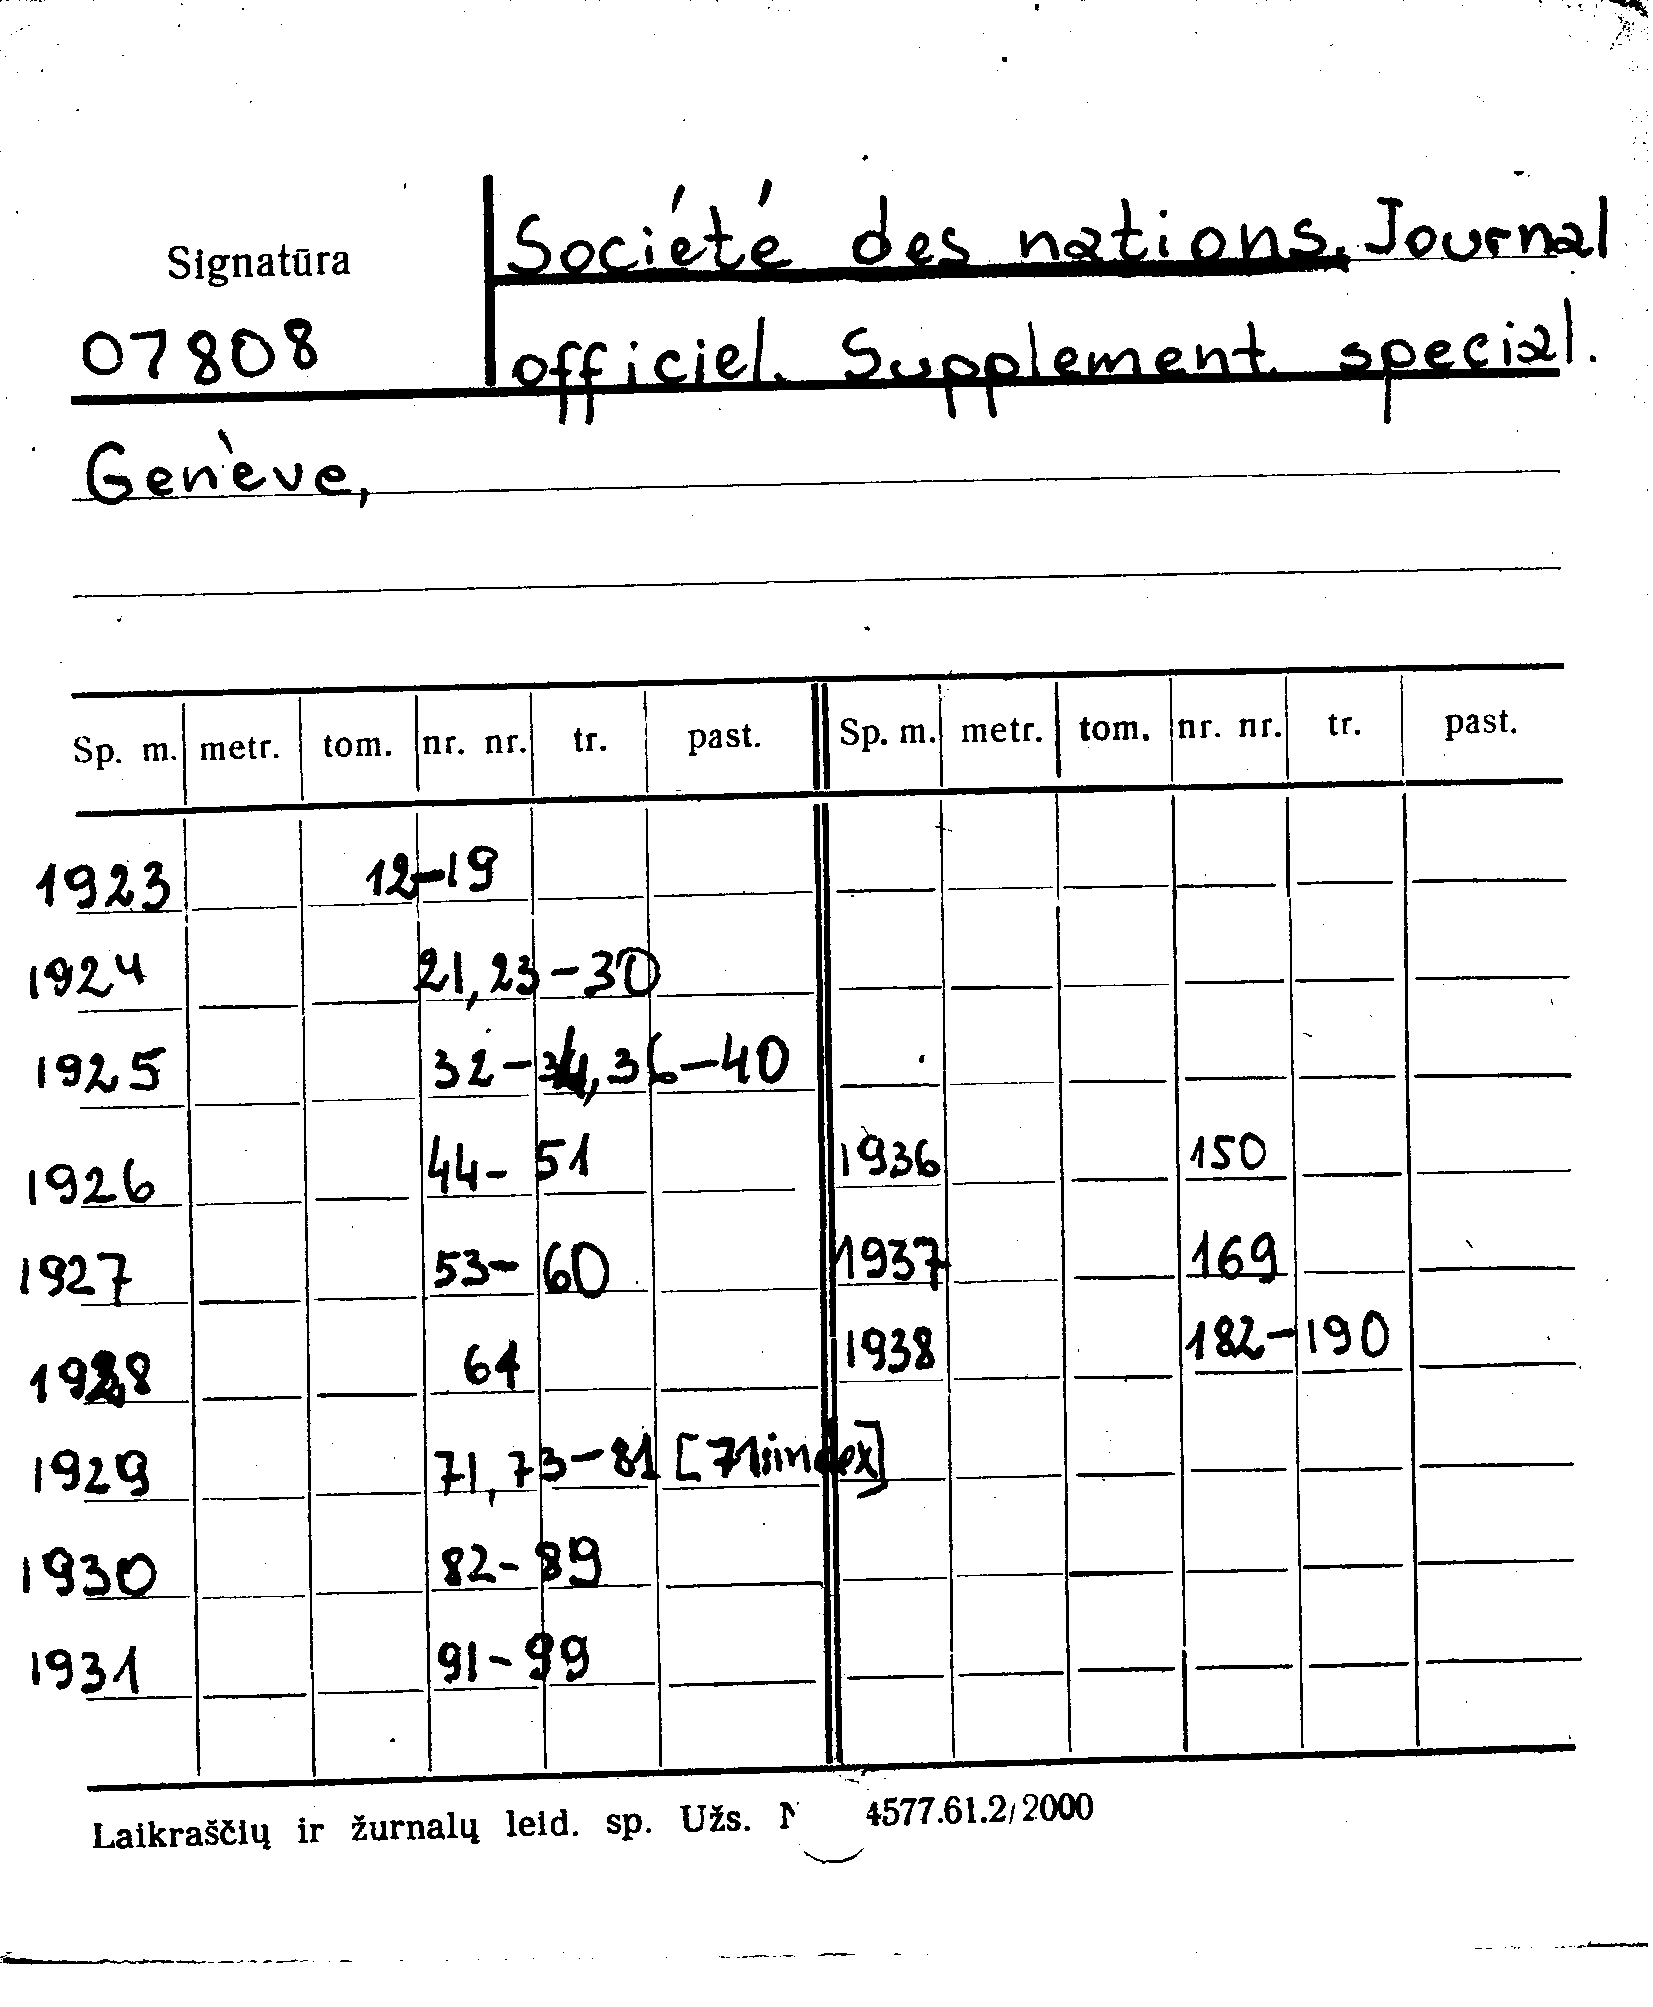 Société des nations. Journal
Signatūra
07808
officiel. Supplement special.
Genève,
Sp. m. metr. tom. nr. nr. tr. past. Sp. m. metr. tom. nr. nr. tr. past.
1923 12-19
1924 21, 23-30
1925 32-34, 36-40
1926 44- 51 1936 150
1927 53- 60 1937 169
1928 64 1938 182-190
1929 71, 73-81 [71 index]
1930 82- 89
1931 91-99
Laikraščių ir žurnalų leid. sp. Užs. N 4577.61.2/2000